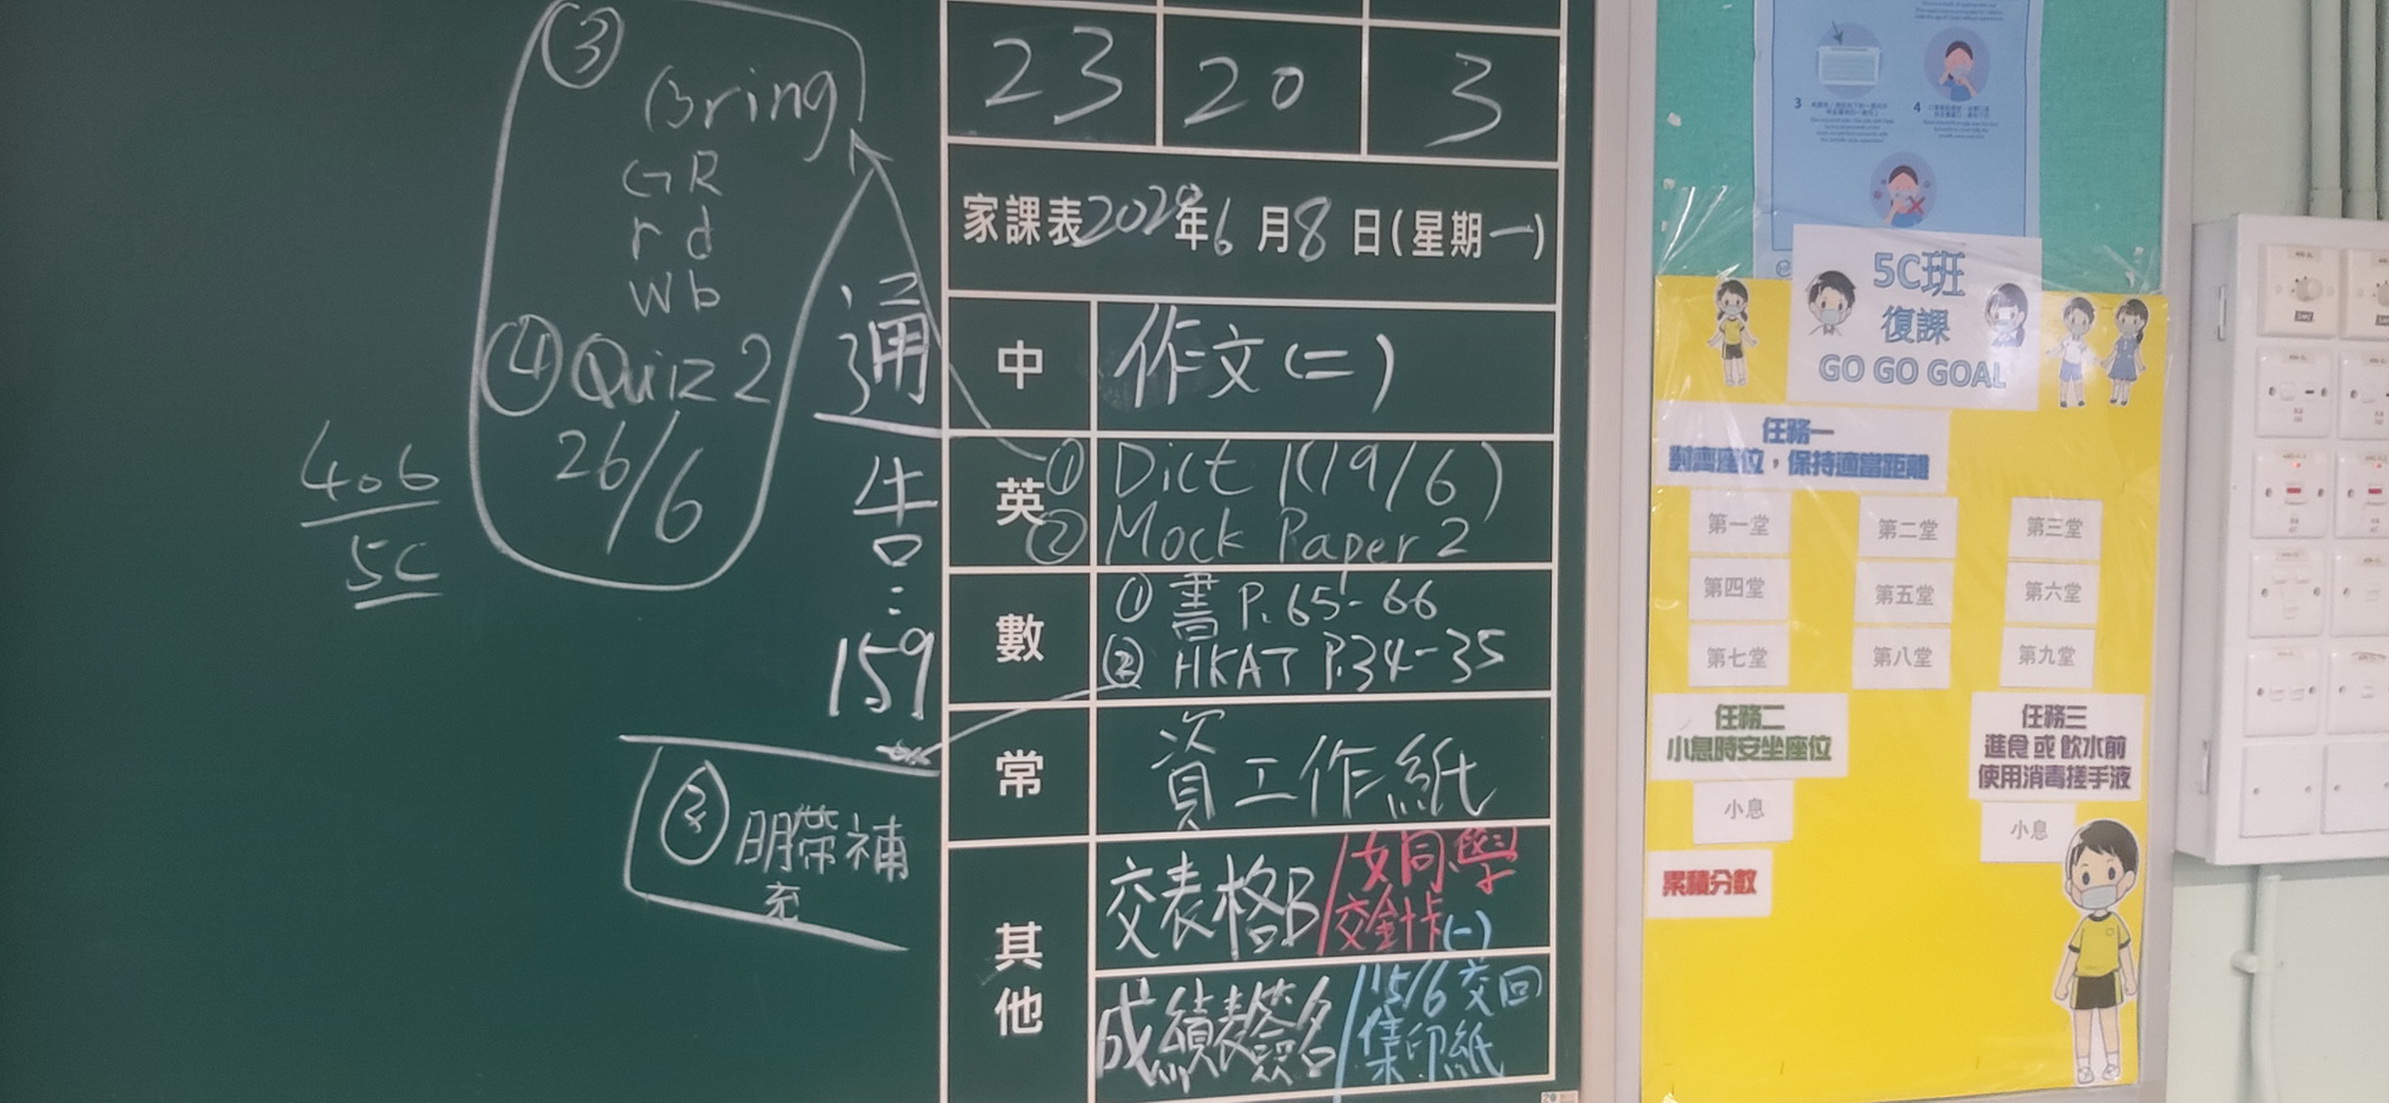 ③
Bring
GR
rd
Wb
④ Quiz 2
26/6
406
5C
通告:
159
③ 明帶補充
23 20 3
家課表 2020年6月8日(星期一)
中 作文(二)
英 ① Dict 1(19/6)
② Mock Paper 2
數 ① 書 P.65-66
② HKAT P.34-35
常 資工作紙
其他 交表格B/女同學交針卡(一)
成績表簽名/15/6交回集印紙
3
4
5C班
復課
GO GO GOAL
任務一
對齊座位,保持適當距離
第一堂 第二堂 第三堂
第四堂 第五堂 第六堂
第七堂 第八堂 第九堂
任務二
小息時安坐座位
小息
任務三
進食 或 飲水前
使用消毒搓手液
小息
累積分數